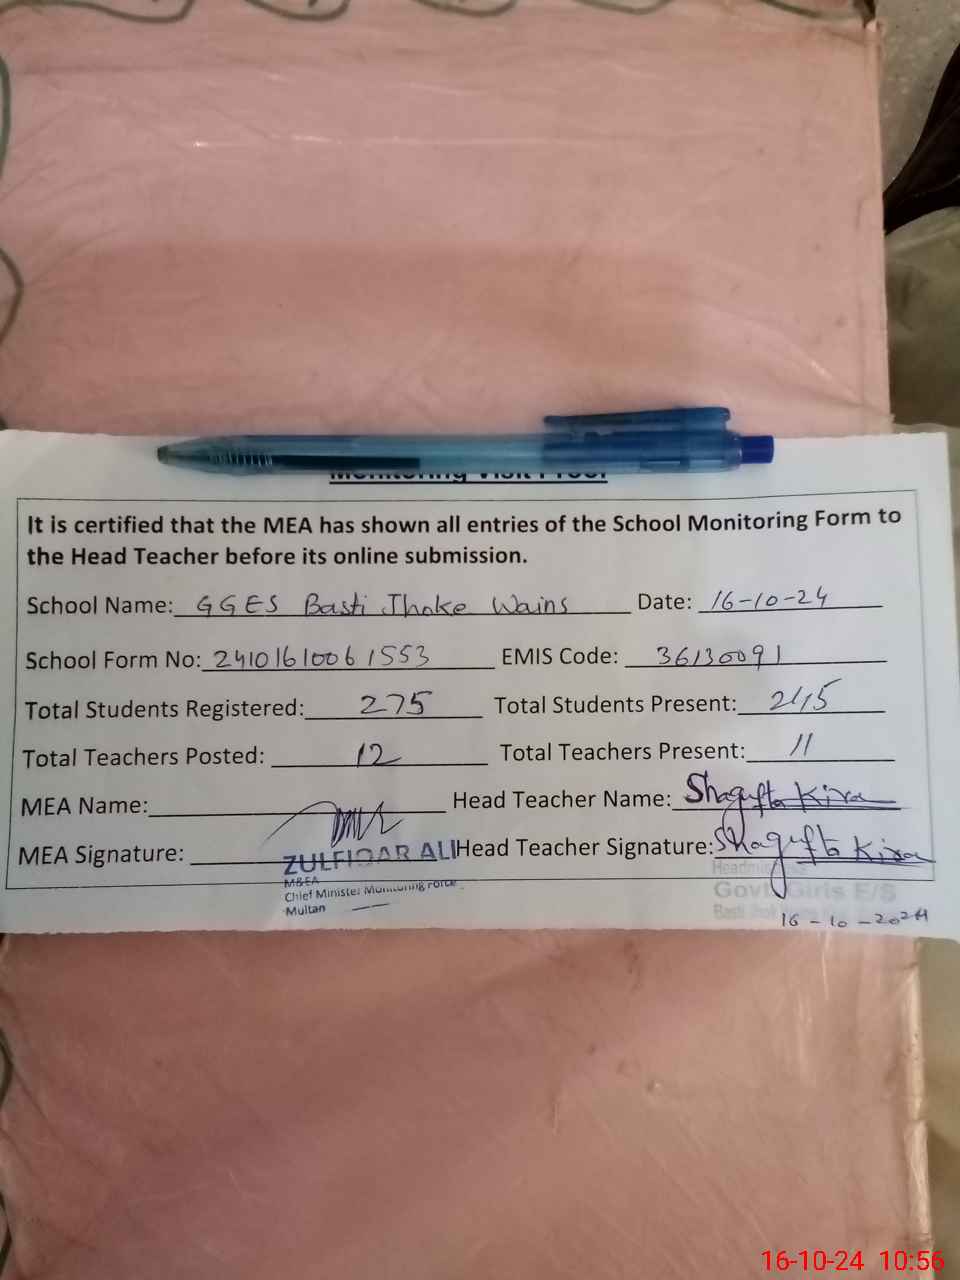 Monitoring Visit Proof
It is certified that the MEA has shown all entries of the School Monitoring Form to
the Head Teacher before its online submission.
School Name: GGES Basti Jhoke Wains Date: 16-10-24
School Form No: 24101610061553 EMIS Code: 36130091
Total Students Registered: 275 Total Students Present: 245
Total Teachers Posted: 12 Total Teachers Present: 11
MEA Name: Head Teacher Name: Shagufta Kiran
MEA Signature: Head Teacher Signature: Shagufta Kiran
ZULFIQAR ALI
M&EA
Chief Minister Monitoring Force
Multan
Govt. Girls E/S
Basti
16-10-2024
16-10-24 10:56